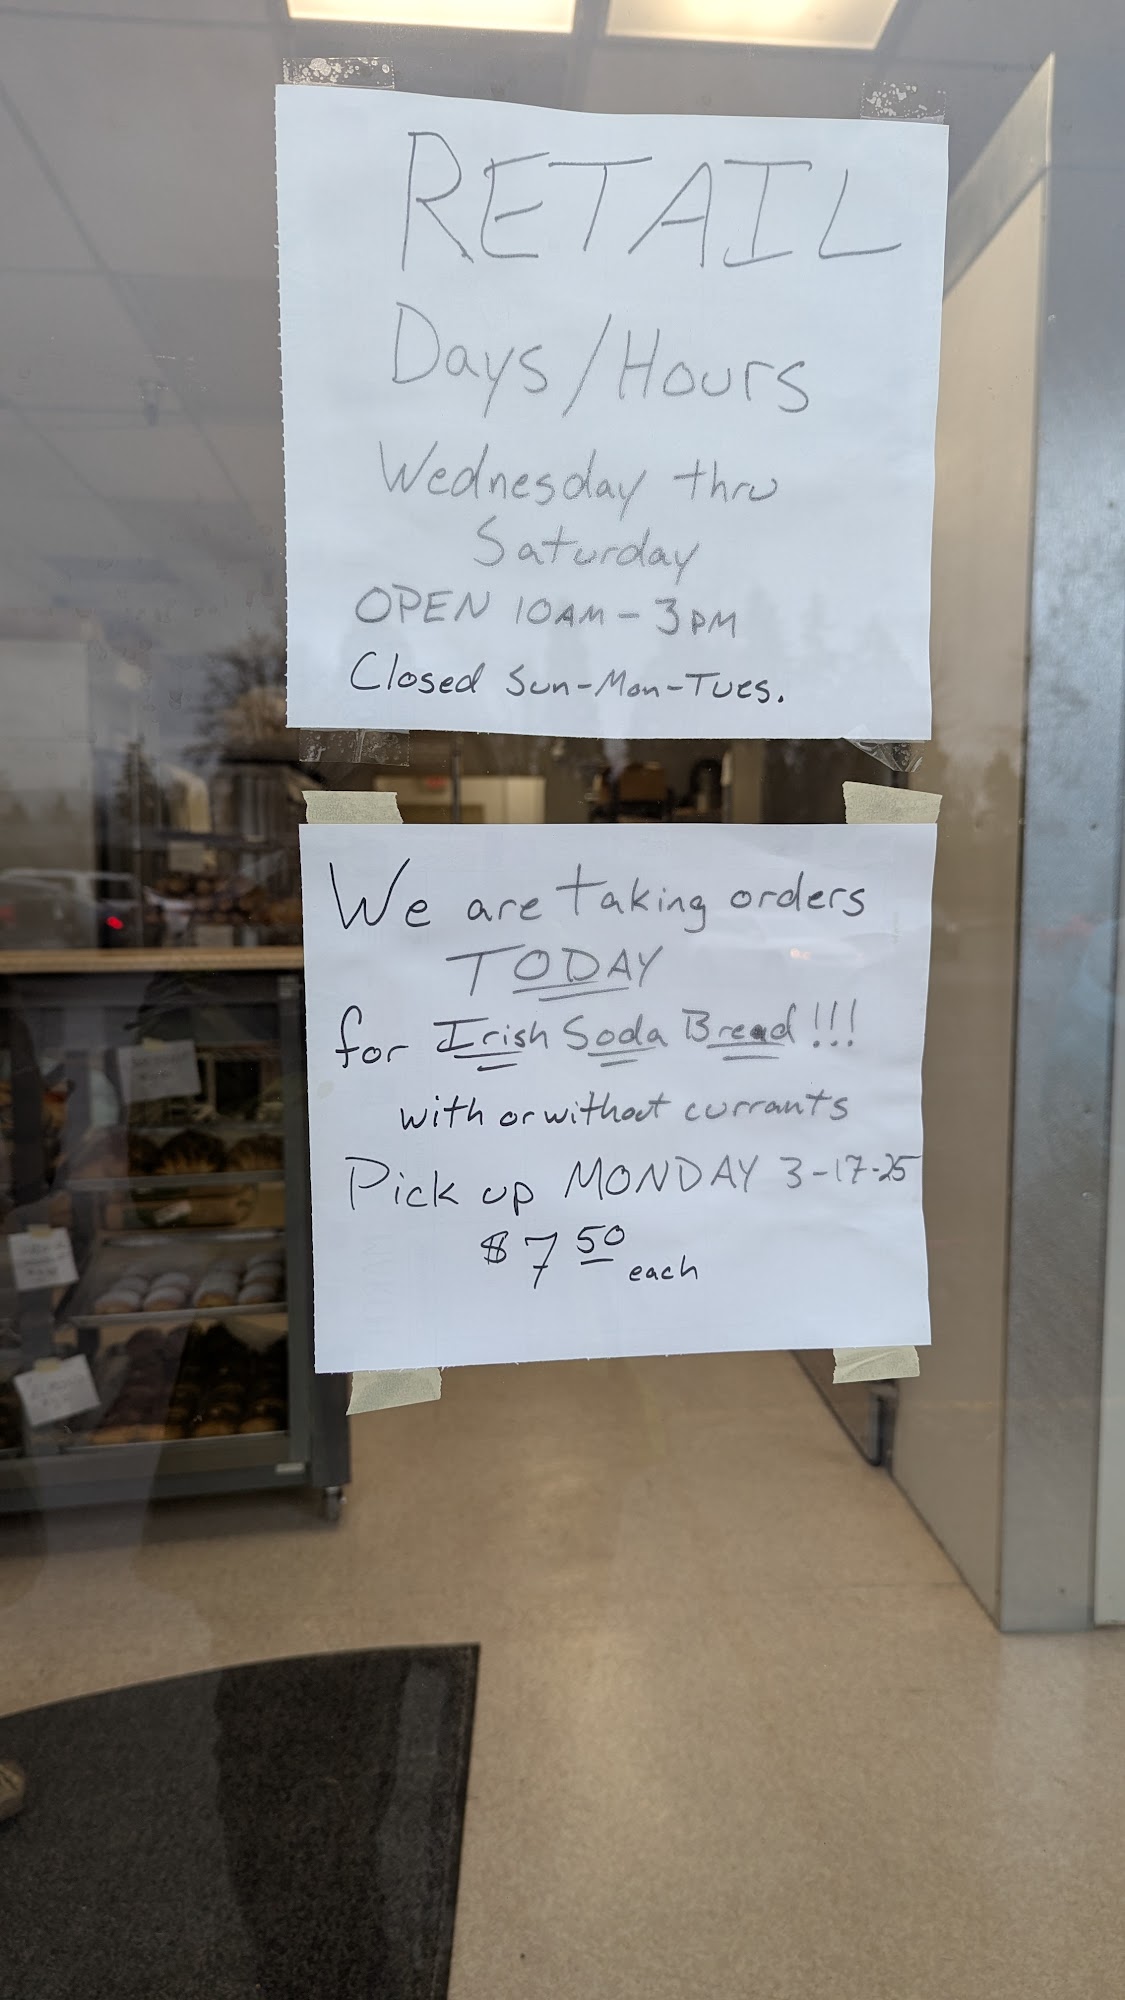 RETAIL
Days/Hours
Wednesday thru
Saturday
OPEN 10AM-3PM
Closed Sun-Mon-Tues.
We are taking orders
TODAY
for Irish Soda Bread!!!
with or without currants
Pick up MONDAY 3-17-25
$7 50 each